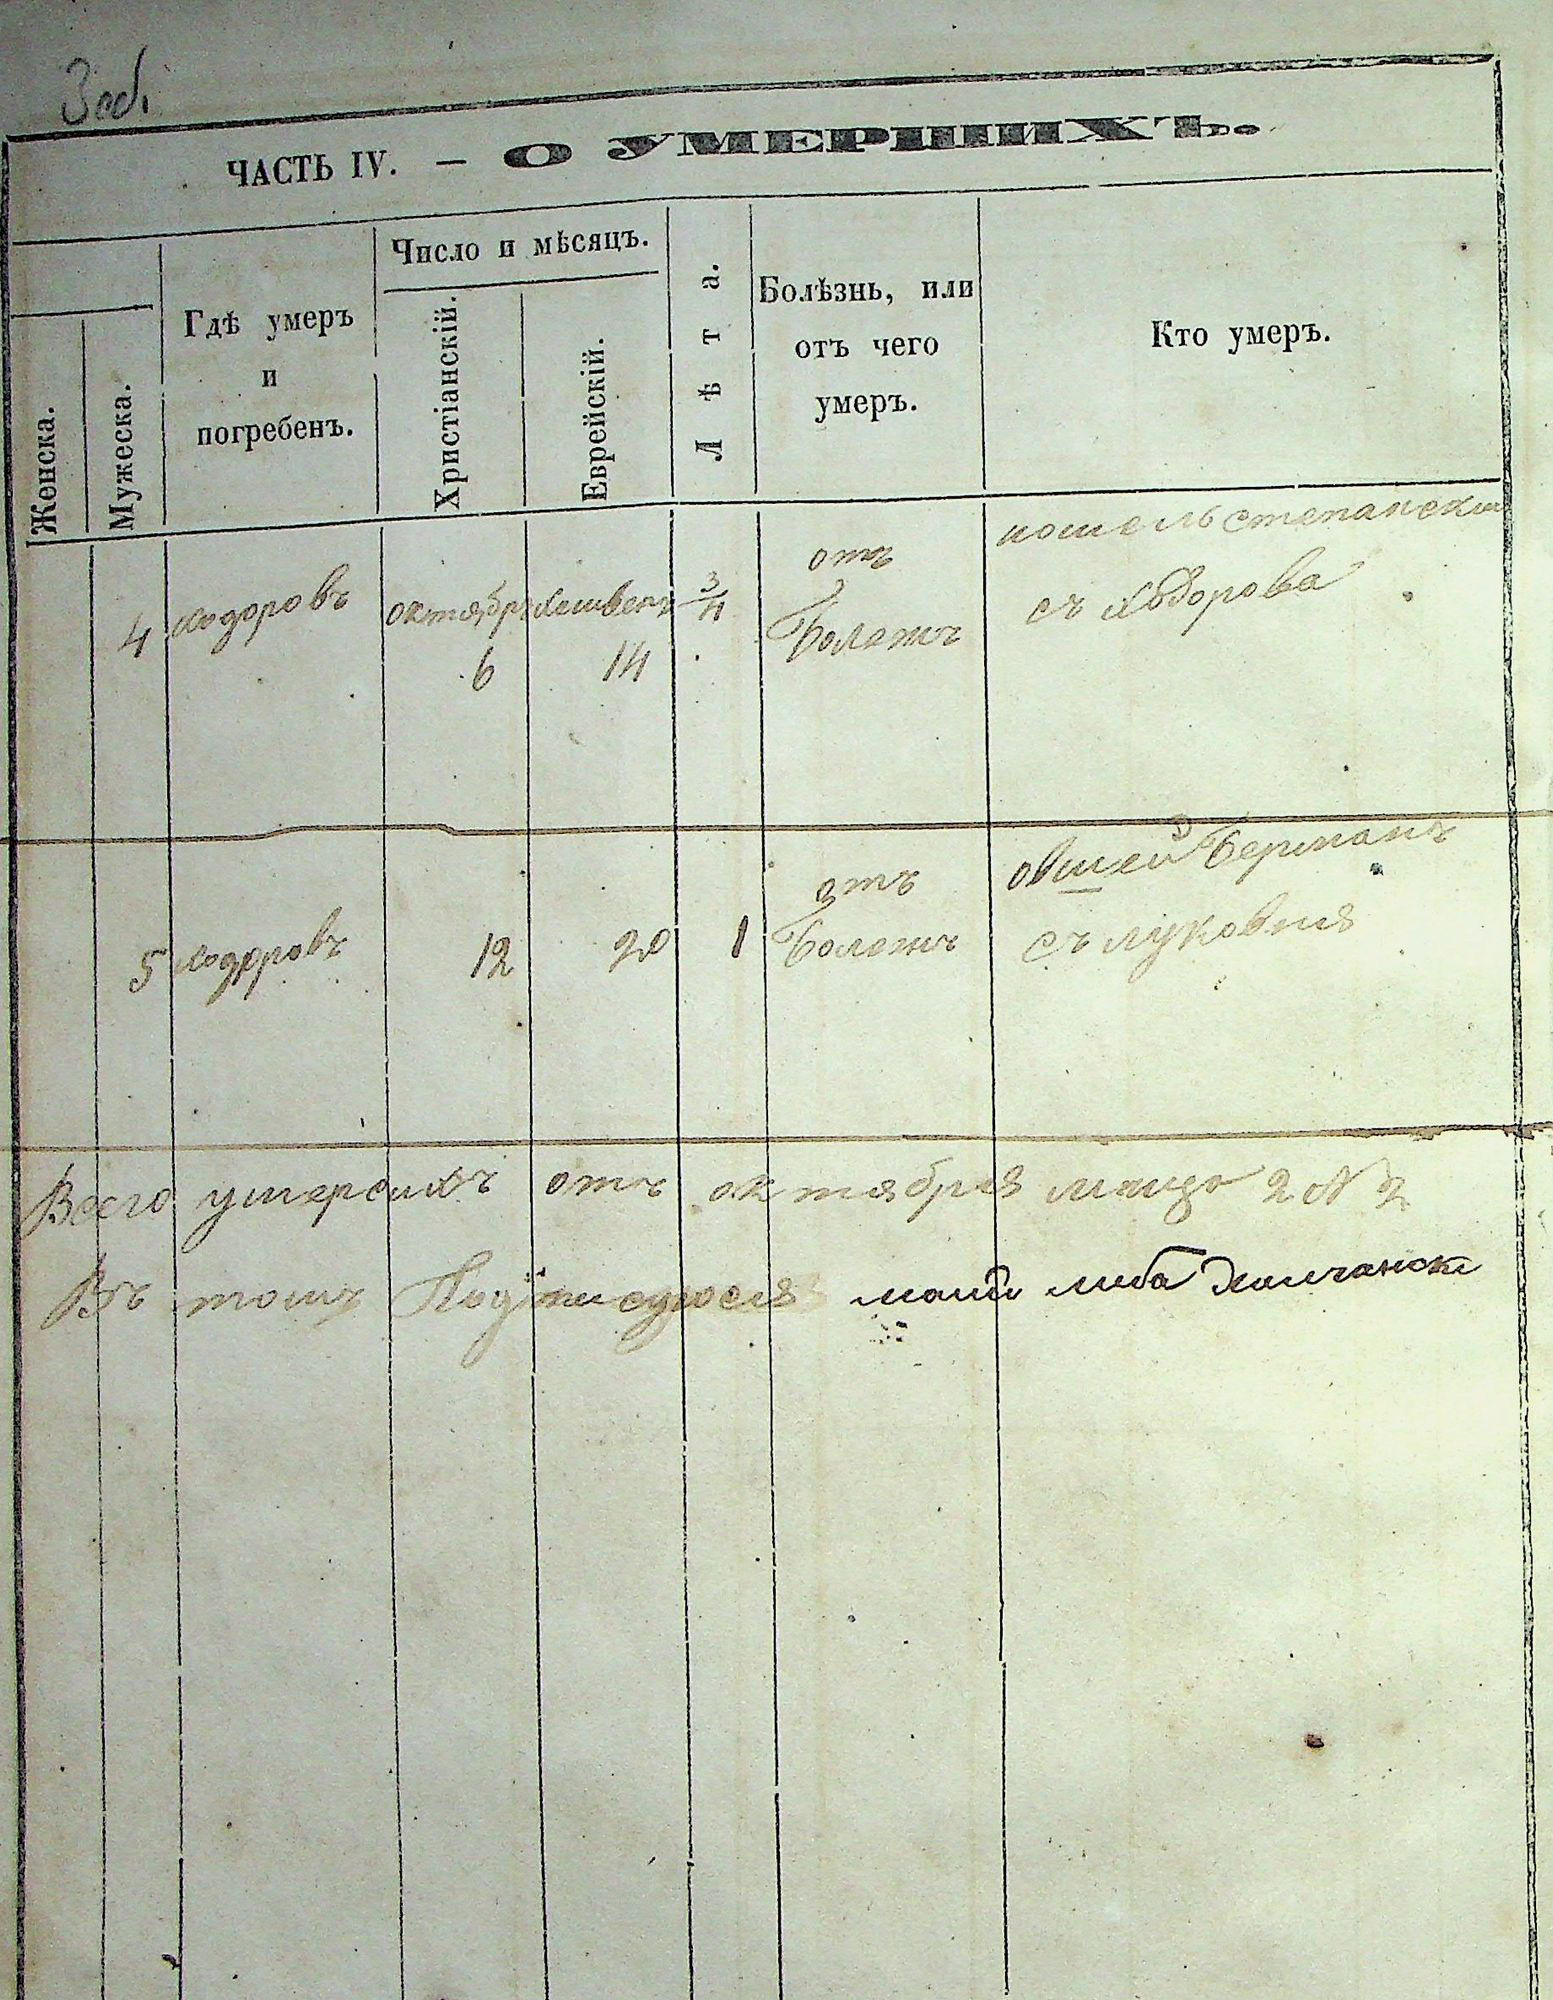 3 об.
ЧАСТЬ IV. — О УМЕРШИХЪ.
Женска.
Мужеска.
Гдѣ умеръ
и
погребенъ.
Число и мѣсяцъ.
Христіанскій.
Еврейскій.
Лѣта.
Болѣзнь, или
отъ чего
умеръ.
Кто умеръ.
4 ходоровъ октября 6 Хешвенъ 14 3/4
отъ
Болезнъ
степански
съ ходорова
5 ходоровъ 12 20 1
отъ
Болезнъ
овшей Берманъ
съ луковия
Всего умерсихъ отъ октября 2 N 2
Въ томъ